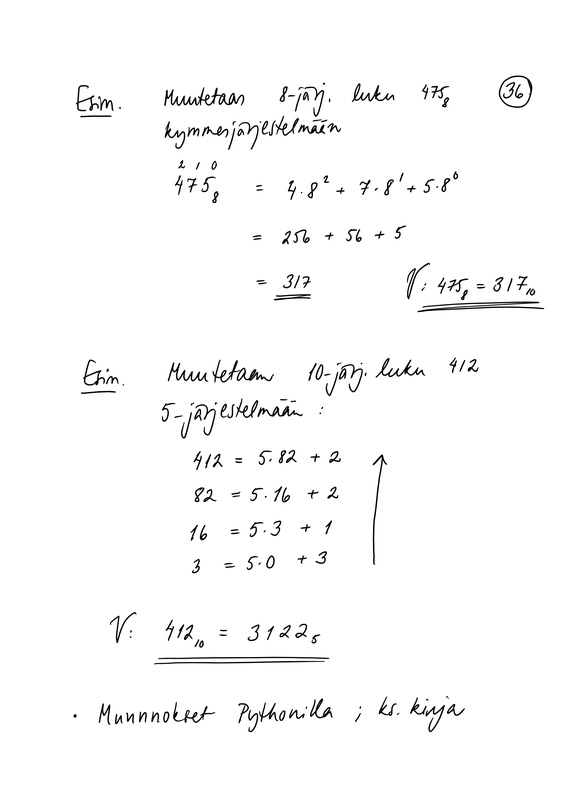 Esim. Muutetaan 8-järj. luku 475₈ (36)
kymmenjärjestelmään
2 1 0
475₈ = 4·8² + 7·8¹ + 5·8⁰
= 256 + 56 + 5
= 317 V: 475₈ = 317₁₀
Esim. Muutetaan 10-järj. luku 412
5-järjestelmään :
412 = 5·82 + 2
82 = 5·16 + 2
16 = 5·3 + 1
3 = 5·0 + 3
V: 412₁₀ = 3122₅
· Muunnokset Pythonilla ; ks. kirja